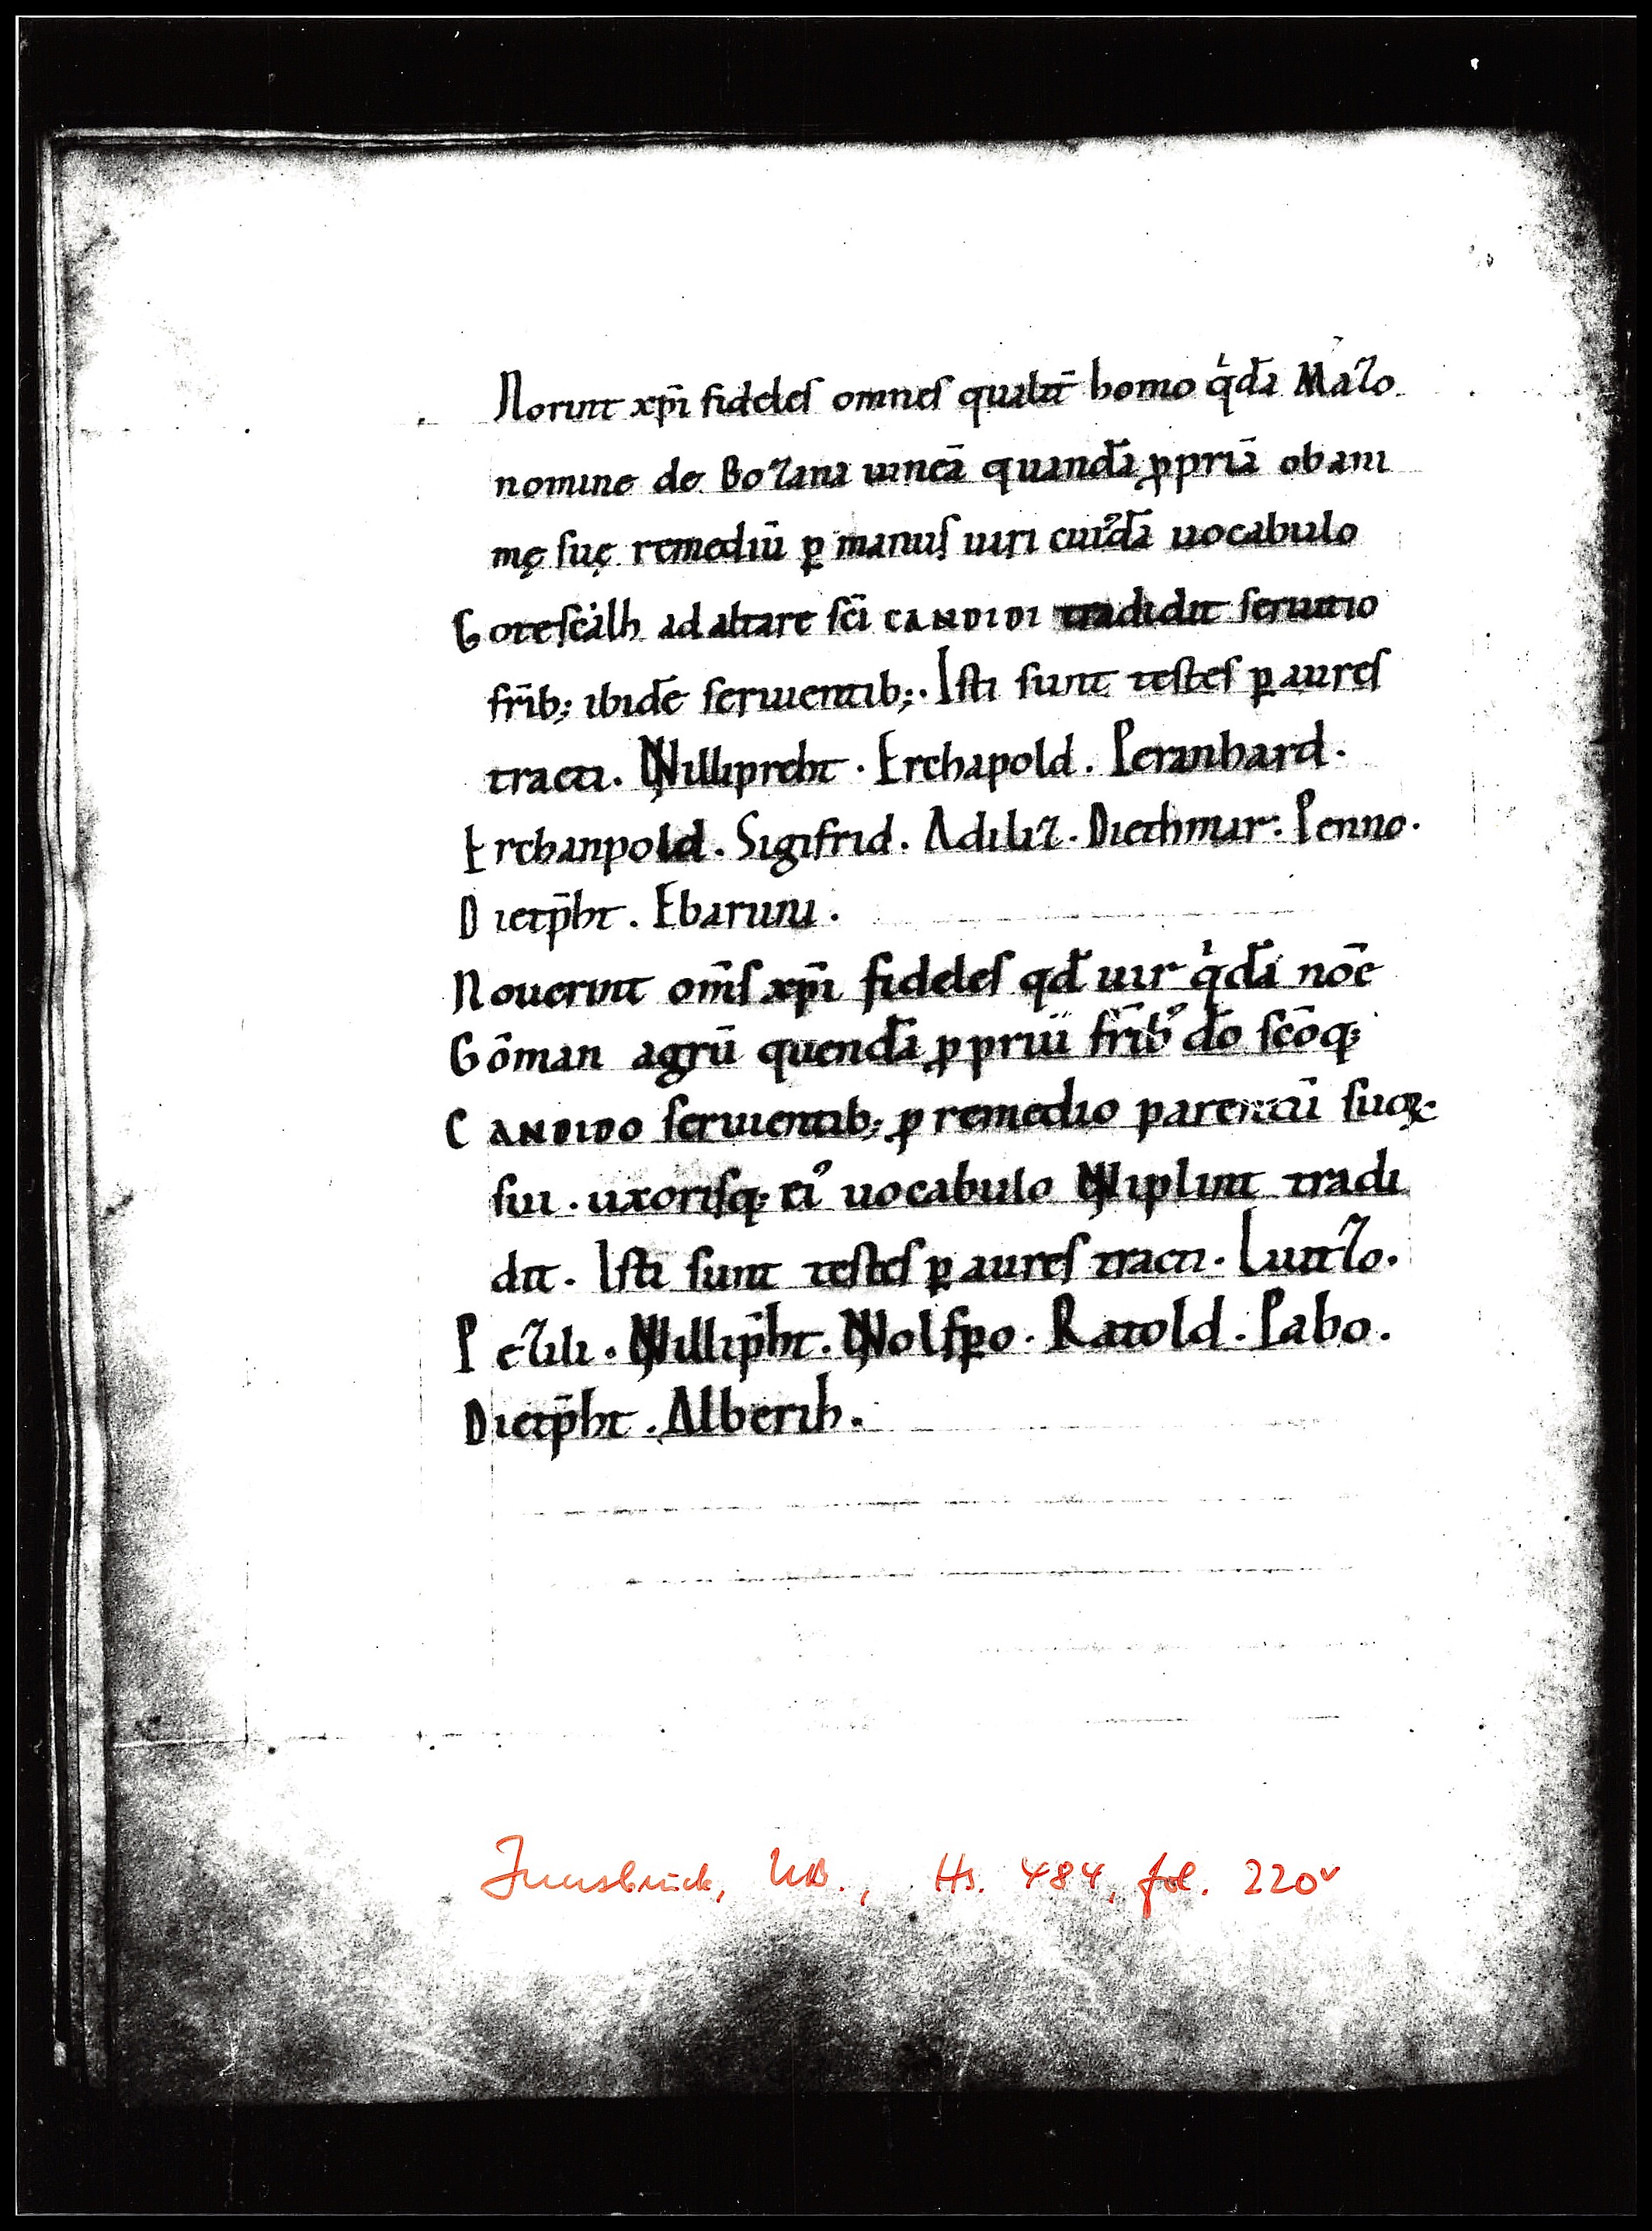 Norint xp̄i fideles omnes qualit̄ homo qͥdā Mazo
nomine de Bozana uineā quandā ꝓpriā ob ani
mę suę remediū ꝑ manus uiri cui᾿dā uocabulo
Gotescálh ad altare sc̄i CANDIDI tradidit seruitio
fr̄ib; ibidē seruientib;. Isti sunt testes ꝑ aures
tracti. VVillipreht. Erchapold. Peranhard.
Erchanpold. Sigifrid. Adiliz. Diethmar. Penno.
Dietp̄ht. Ebaruni.
Nouerint om̄s xp̄i fideles qđ uir qͥdā nōe
Gōman agrū quendā ꝓpriū fr̄ib᾿ dō sc̄oq;
CANDIDO seruientib; ꝓ remedio parentū suoꝝ.
sui. uxorisq; ei᾿ uocabulo VViplint tradi
dit. Isti sunt testes ꝑ aures tracti. Luitzo.
Pezili. VVillip̄ht. VVolfꝑo. Ratold. Pabo.
Dietp̄ht. Alberih.
Innsbruck, UB., Hs. 484, fol. 220v